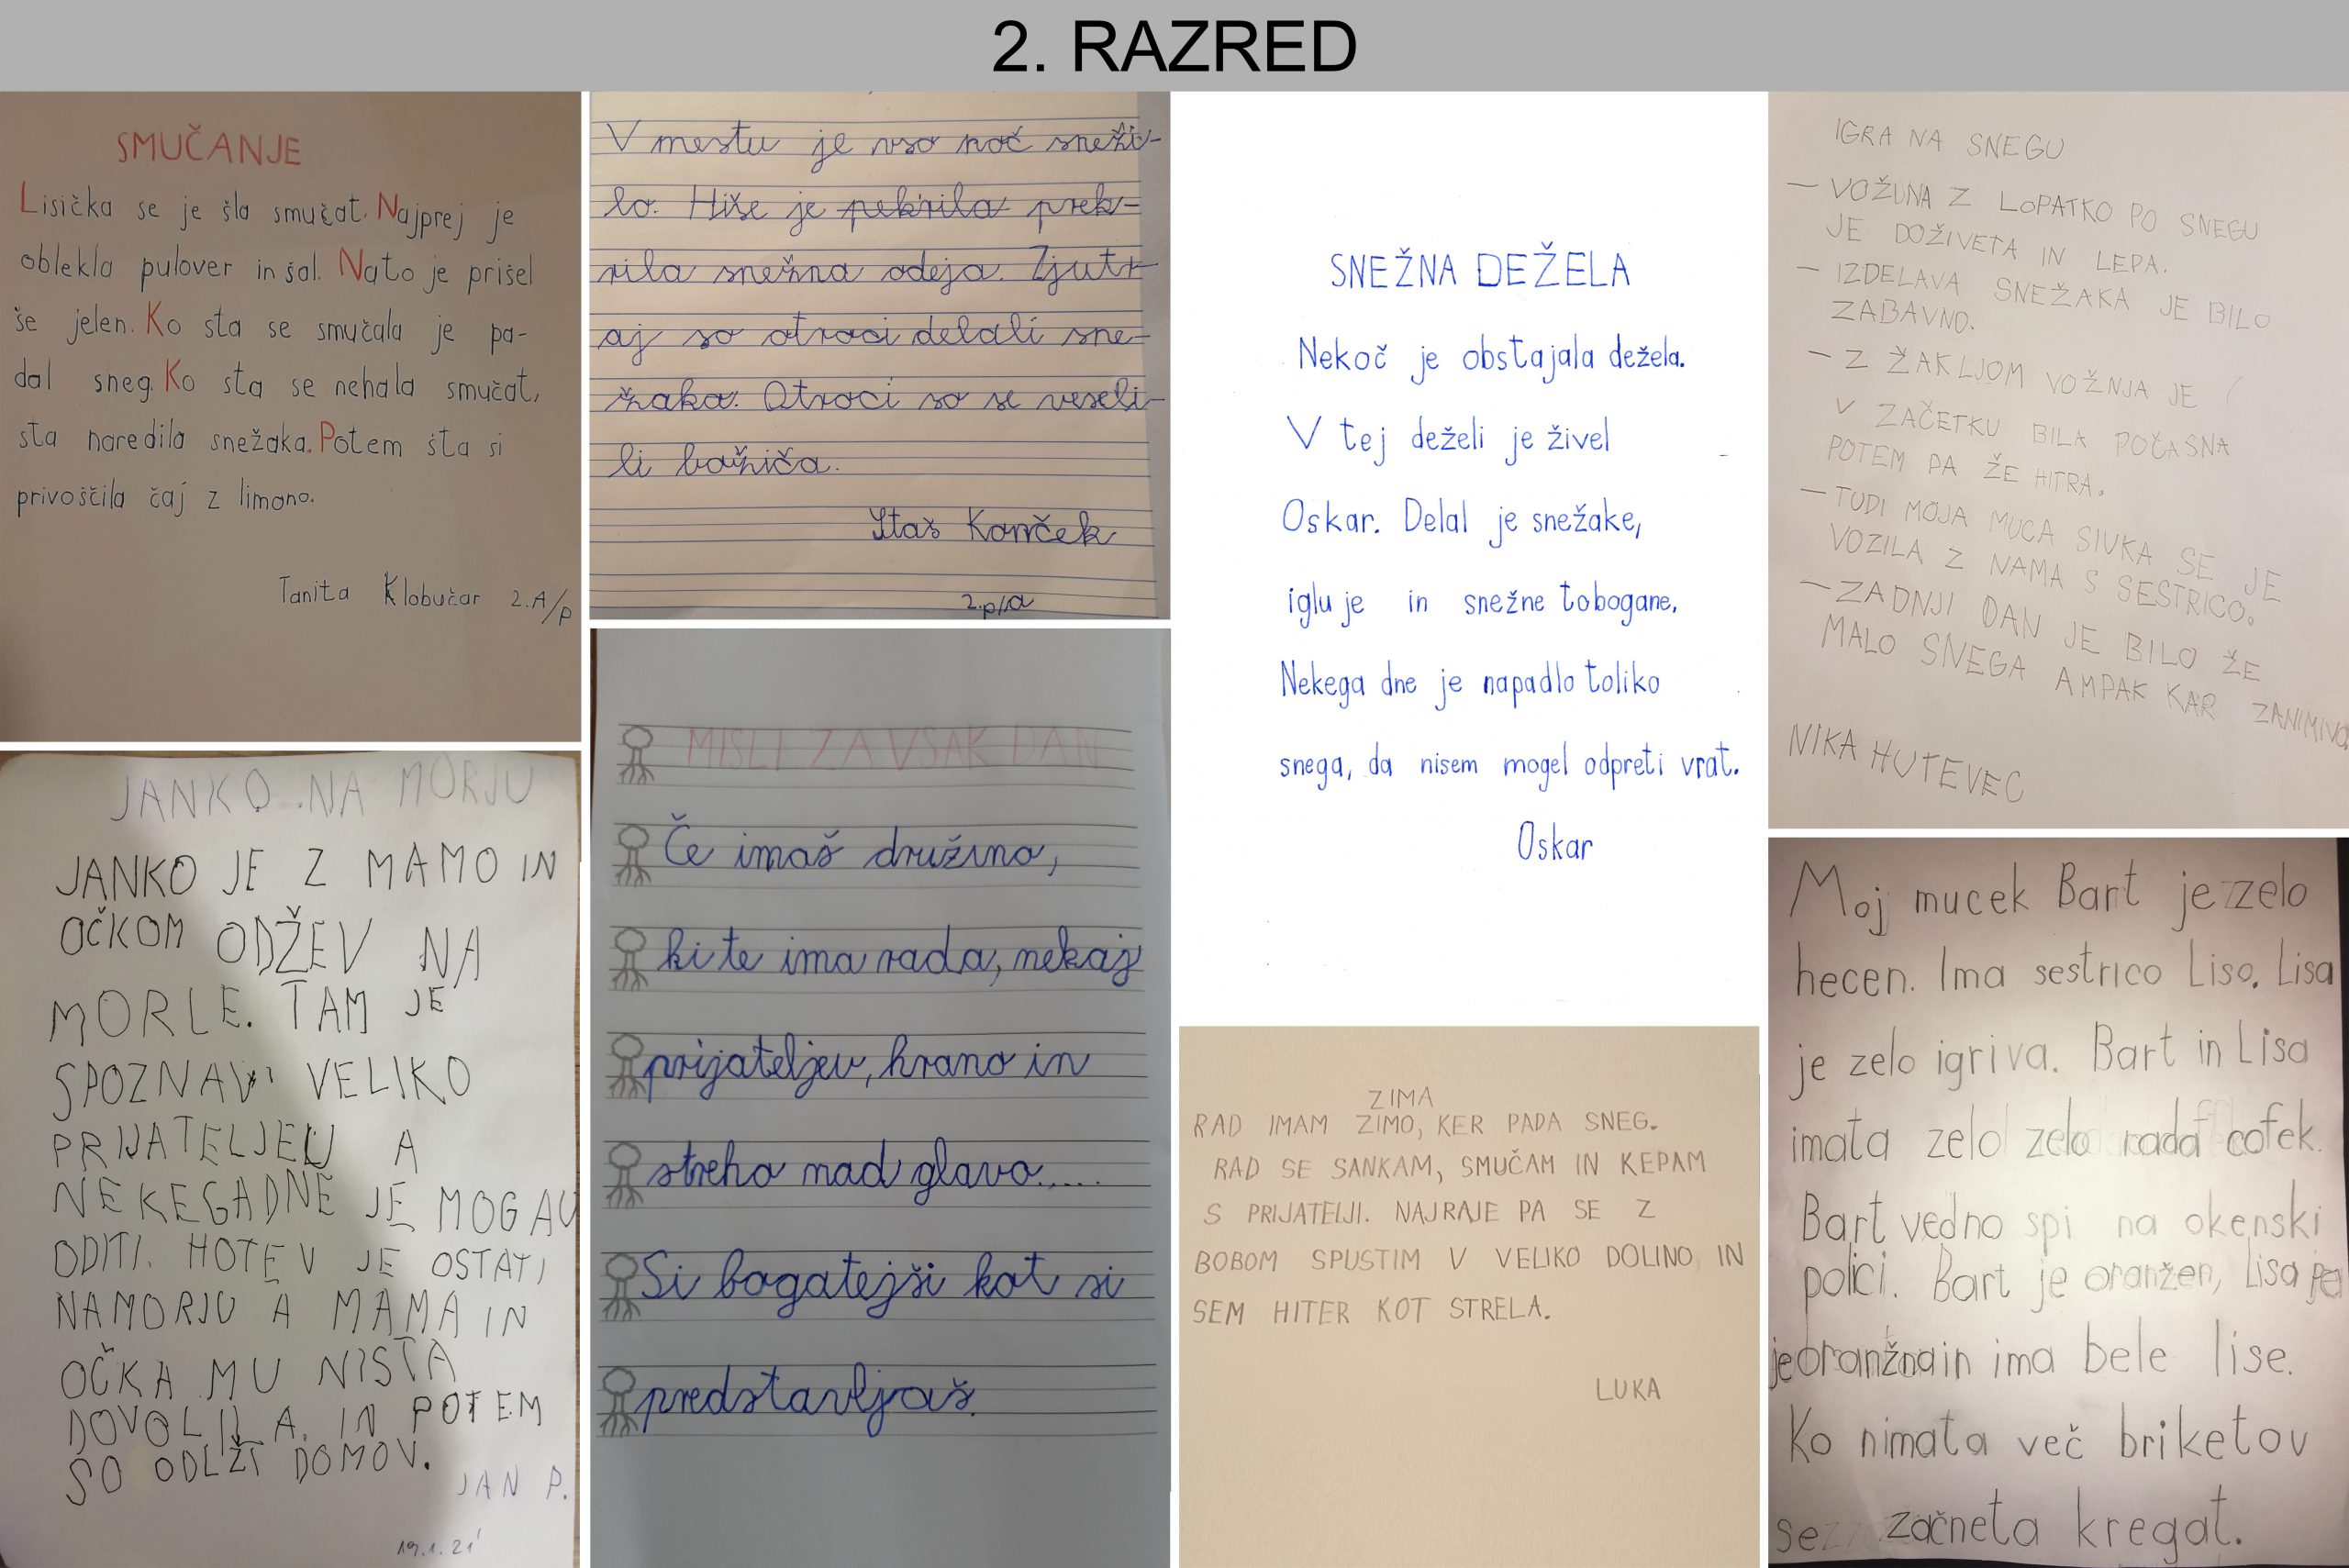 2. RAZRED
SMUČANJE
Lisička se je šla smučat. Najprej je
oblekla pulover in šal. Nato je prišel
še jelen. Ko sta se smučala je pa-
dal sneg. Ko sta se nehala smučat,
sta naredila snežaka. Potem šta si
privoščila čaj z limono.
Tanita Klobučar 2.A/p
JANKO NA MORJU
JANKO JE Z MAMO IN
OČKOM ODŽEV NA
MORLE. TAM JE
SPOZNAV VELIKO
PRIJATELJEU A
NEKEGADNE JE MOGAU
ODITI. HOTEV JE OSTATI
NAMORJU A MAMA IN
OČKA MU NISTA
DOVOLILA. IN POTEM
SO ODLŽI DOMOV.
JAN P.
19.1.21
V mestu je vso noč sneži-
lo. Hiše je pekrila prek-
rila snežna odeja. Zjutr
aj so otroci delali sne-
žaka. Otroci so se veseli-
li božiča.
Staš Konček
2.p/a
MISLI ZA VSAK DAN
Če imaš družino,
ki te ima rada, nekaj
prijateljev, hrano in
streho nad glavo.....
Si bogatejši kot si
predstavljaš.
SNEŽNA DEŽELA
Nekoč je obstajala dežela.
V tej deželi je živel
Oskar. Delal je snežake,
igluje in snežne tobogane.
Nekega dne je napadlo toliko
snega, da nisem mogel odpreti vrat.
Oskar
ZIMA
RAD IMAM ZIMO, KER PADA SNEG.
RAD SE SANKAM, SMUČAM IN KEPAM
S PRIJATELJI. NAJRAJE PA SE Z
BOBOM SPUSTIM V VELIKO DOLINO, IN
SEM HITER KOT STRELA.
LUKA
IGRA NA SNEGU
– VOŽUNA Z LOPATKO PO SNEGU
JE DOŽIVETA IN LEPA.
– IZDELAVA SNEŽAKA JE BILO
ZABAVNO.
– Z ŽAKLJOM VOŽNJA JE
V ZAČETKU BILA POČASNA
POTEM PA ŽE HITRA.
– TUDI MOJA MUCA SIVKA SE JE
VOZILA Z NAMA S SESTRICO.
– ZADNJI DAN JE BILO ŽE
MALO SNEGA AMPAK KAR ZANIMIVO
NIKA HUTEVEC
Moj mucek Bart je zelo
hecen. Ima sestrico Liso. Lisa
je zelo igriva. Bart in Lisa
imata zelo zelo rada cofek.
Bart vedno spi na okenski
polici. Bart je oranžen, Lisa pa
je oranžna in ima bele lise.
Ko nimata več briketov
se začneta kregat.